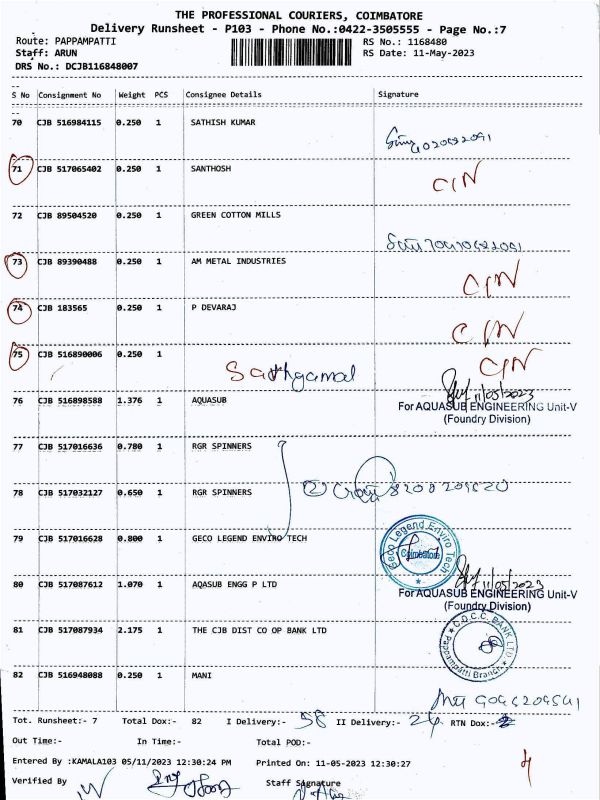 THE PROFESSIONAL COURIERS, COIMBATORE
Delivery Runsheet - P103 - Phone No.:0422-3505555 - Page No.:7
Route: PAPPAMPATTI RS No.: 1168480
Staff: ARUN RS Date: 11-May-2023
DRS No.: DCJB116848007
S No Consignment No Weight PCS Consignee Details Signature
70 CJB 516984115 0.250 1 SATHISH KUMAR
71 CJB 517065402 0.250 1 SANTHOSH C/N
72 CJB 89504520 0.250 1 GREEN COTTON MILLS
73 CJB 89390488 0.250 1 AM METAL INDUSTRIES C/N
74 CJB 183565 0.250 1 P DEVARAJ C/N
75 CJB 516890006 0.250 1 C/N
76 CJB 516898588 1.376 1 AQUASUB 11/05/2023
For AQUASUB ENGINEERING Unit-V
(Foundry Division)
77 CJB 517016636 0.780 1 RGR SPINNERS
78 CJB 517032127 0.650 1 RGR SPINNERS
79 CJB 517016628 0.800 1 GECO LEGEND ENVIRO TECH
Geco Legend Enviro Tech
Coimbatore
80 CJB 517087612 1.070 1 AQASUB ENGG P LTD 11/05/2023
For AQUASUB ENGINEERING Unit-V
(Foundry Division)
81 CJB 517087934 2.175 1 THE CJB DIST CO OP BANK LTD
C.D.C.C. BANK LTD
Pappampatti Branch
82 CJB 516948088 0.250 1 MANI
Tot. Runsheet:- 7 Total Dox:- 82 I Delivery:- 58 II Delivery:- 24 RTN Dox:-
Out Time:- In Time:- Total POD:-
Entered By :KAMALA103 05/11/2023 12:30:24 PM Printed On: 11-05-2023 12:30:27
Verified By Staff Signature